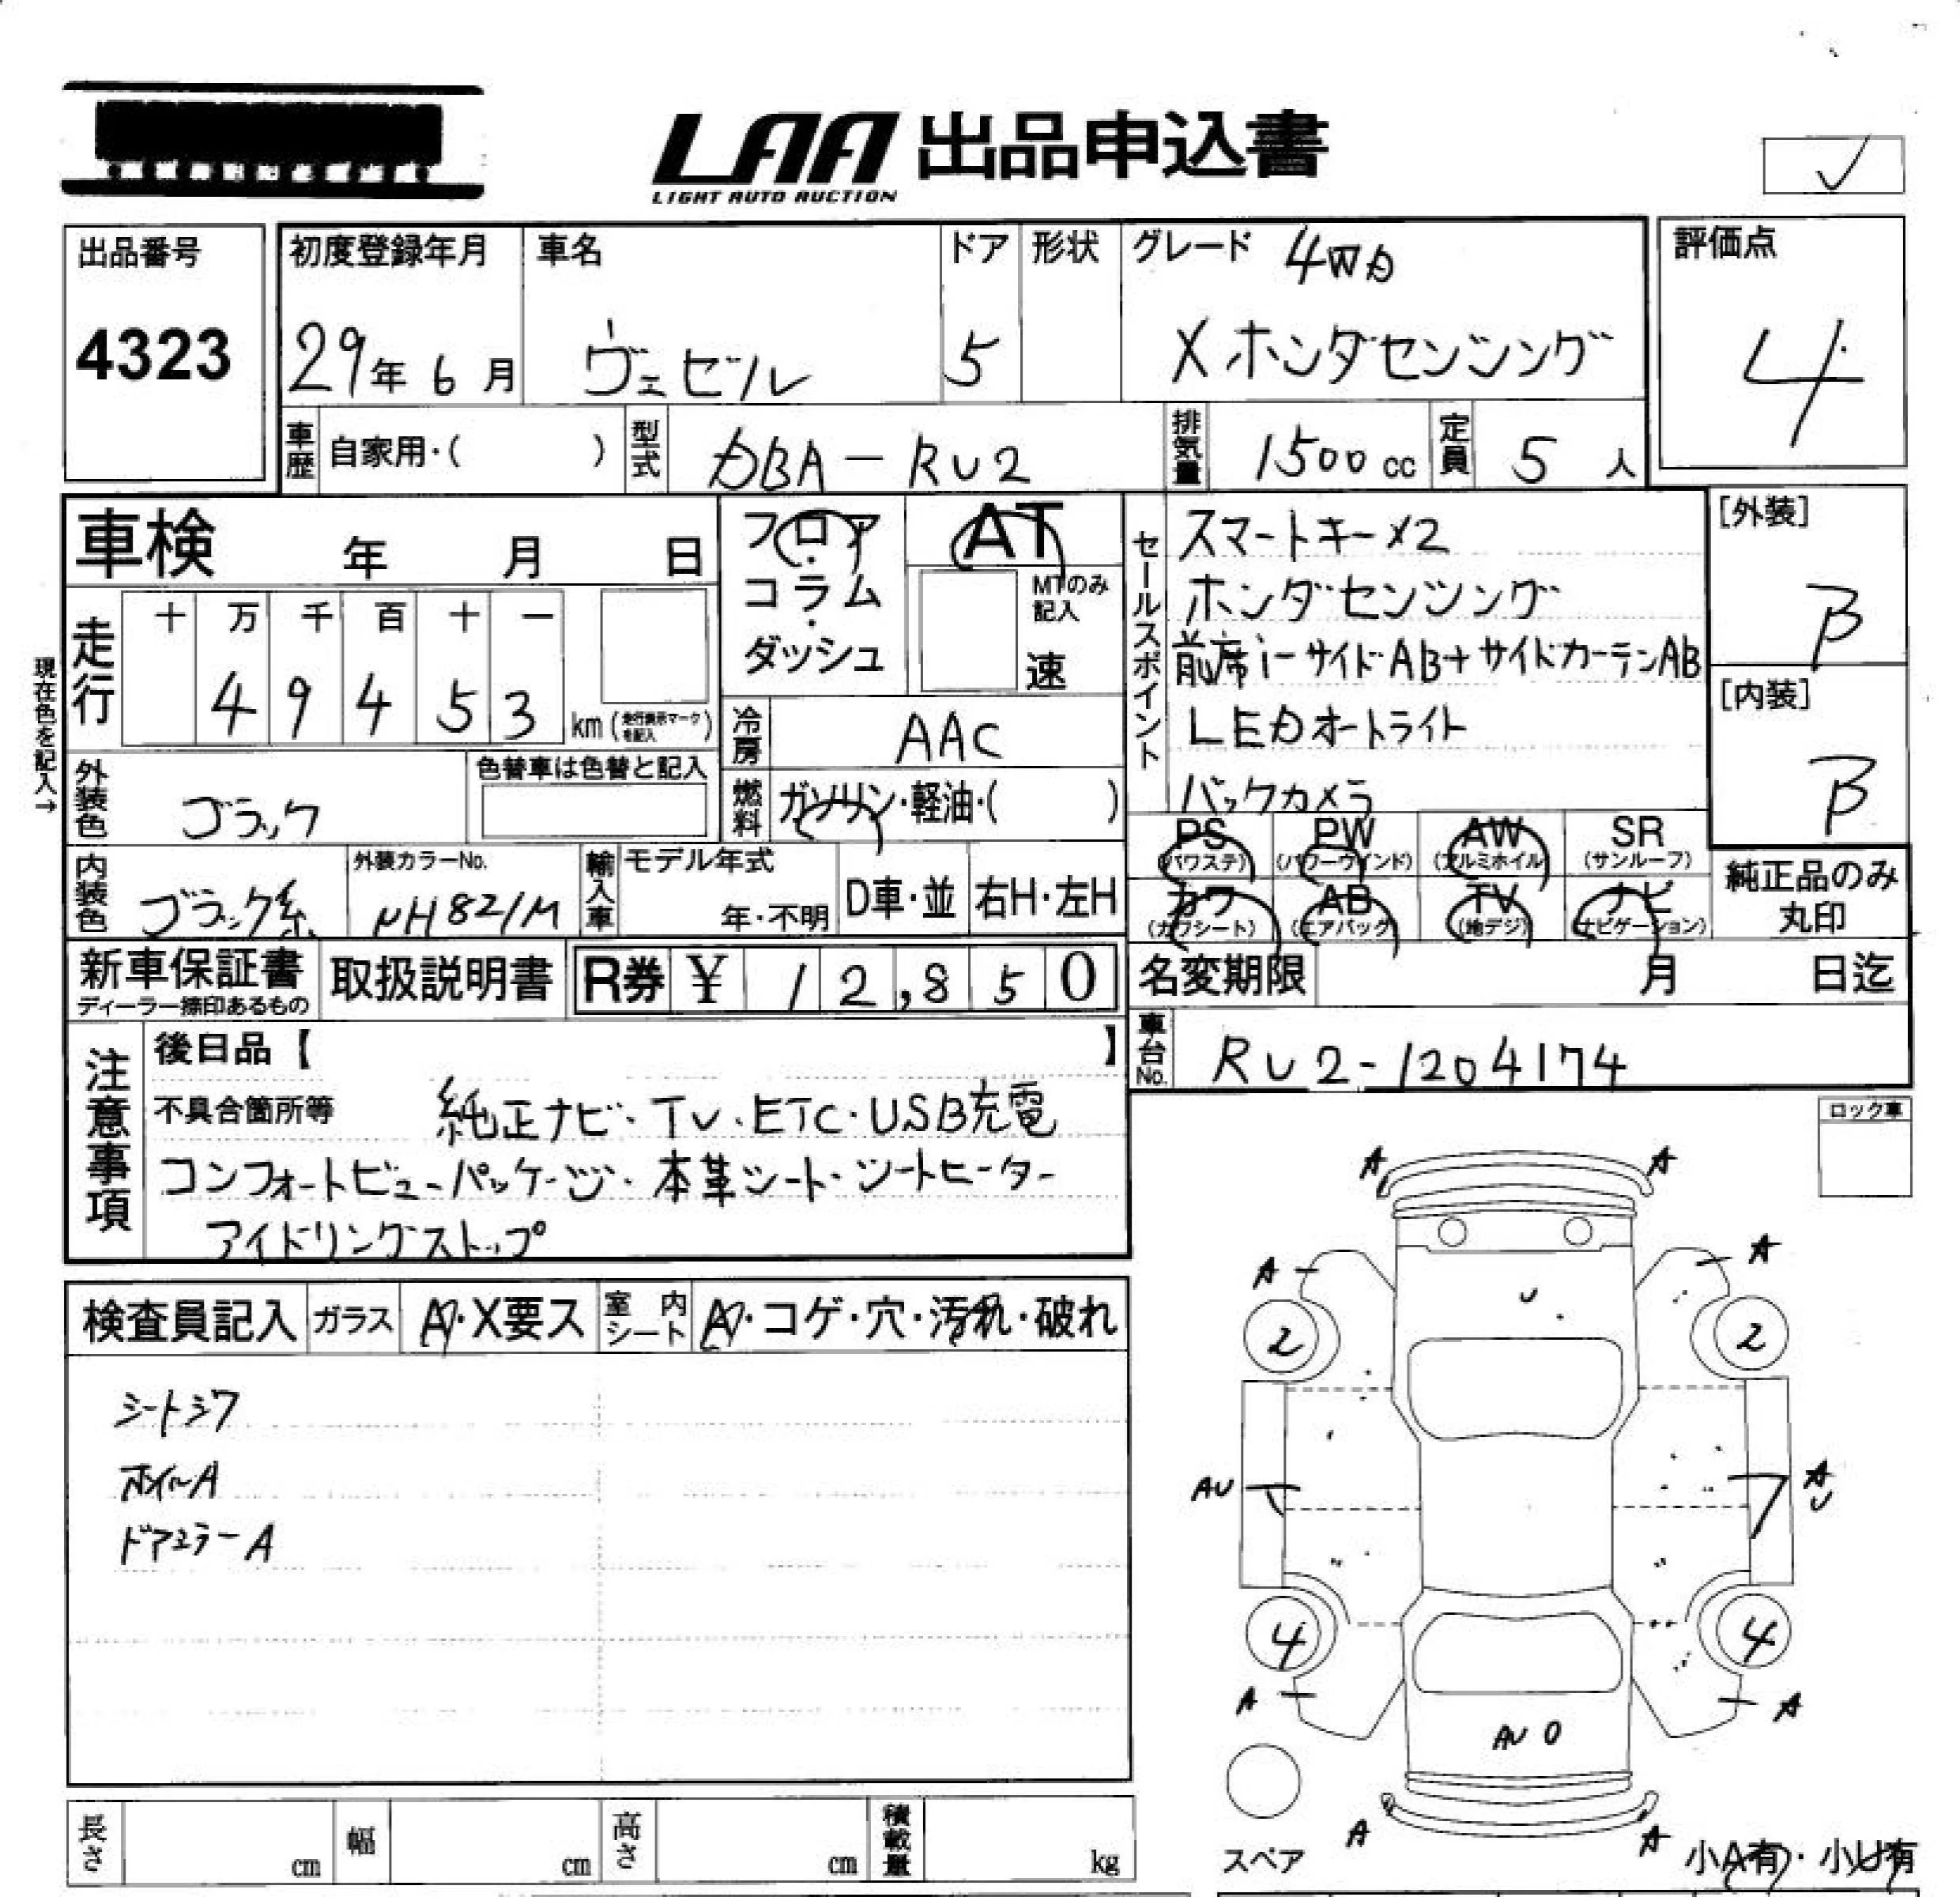 LAA 出品申込書
LIGHT AUTO AUCTION
出品番号
4323
初度登録年月
29年 6月
車名
ヴェゼル
ドア
5
形状
グレード 4WD
X ホンダセンシング
評価点
4
車歴 自家用・( )
型式 DBA-RU2
排気量 1500cc
定員 5人
車検 年 月 日
フロア・コラム・ダッシュ
AT
MTのみ記入
速
走行
十 万 千 百 十 一
4 9 4 5 3
km (走行表示マークを記入)
現在色を記入→
冷房 AAC
燃料 ガソリン・軽油・( )
外装色 ブラック
色替車は色替と記入
内装色 ブラック系
外装カラーNo.
NH821M
輸入車 モデル年式
年・不明
D車・並
右H・左H
セールスポイント
スマートキー×2
ホンダセンシング
前席i-サイドAB+サイドカーテンAB
LEDオートライト
バックカメラ
[外装]
B
[内装]
B
PS (パワステ) PW (パワーウインド) AW (アルミホイル) SR (サンルーフ)
カワ (カワシート) AB (エアバッグ) TV (地デジ) ナビ (ナビゲーション)
純正品のみ
丸印
新車保証書
ディーラー捺印あるもの
取扱説明書
R券 ¥ 12,850
名変期限 月 日迄
車台No. RU2-1204174
注意事項
後日品【 】
不具合箇所等 純正ナビ・TV・ETC・USB充電
コンフォートビューパッケージ・本革シート・シートヒーター
アイドリングストップ
ロック車
検査員記入 ガラス A・X要ス 室内シート A・コゲ・穴・汚れ・破れ
シートシワ
ホイルA
ドアミラーA
A A
A A
U
2 2
AU AU
4 4
A A
AU
A A
スペア
小A有・小U有
長さ cm 幅 cm 高さ cm 積載量 kg